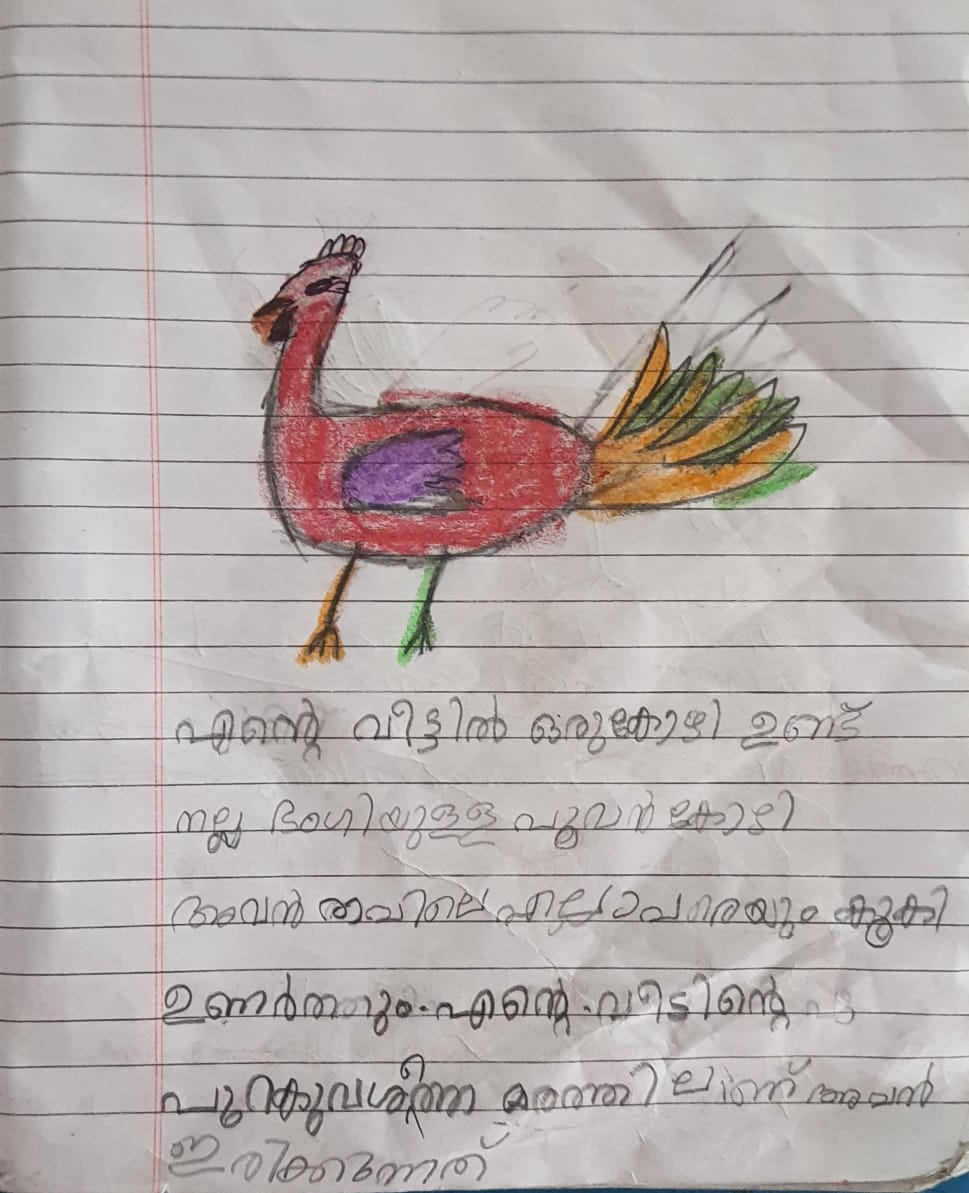 എന്റെ വീട്ടിൽ ഒരുകോഴി ഉണ്ട്
നല്ല ഭംഗിയുള്ള പൂവൻ കോഴി
അവൻ രാവിലെ എല്ലാവരെയും കൂകി
ഉണർത്തും. എന്റെ. വീടിന്റെ
പുറകുവശത്തെ മരത്തി ലാണ് അവൻ
ഇരിക്കുന്നത്